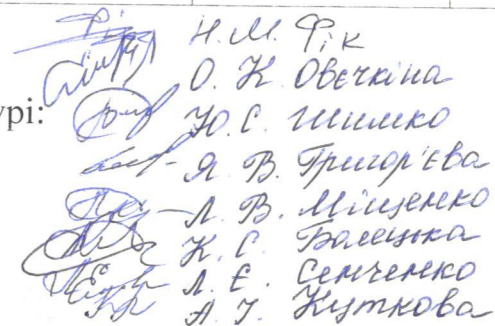 Н. М. Фік
О. К. Овєчкіна
урі:
Ю. С. Шимко
Я. В. Григор'єва
Л. В. Міщенко
К. С. Балецька
Л. Є. Семченко
А. І. Куткова